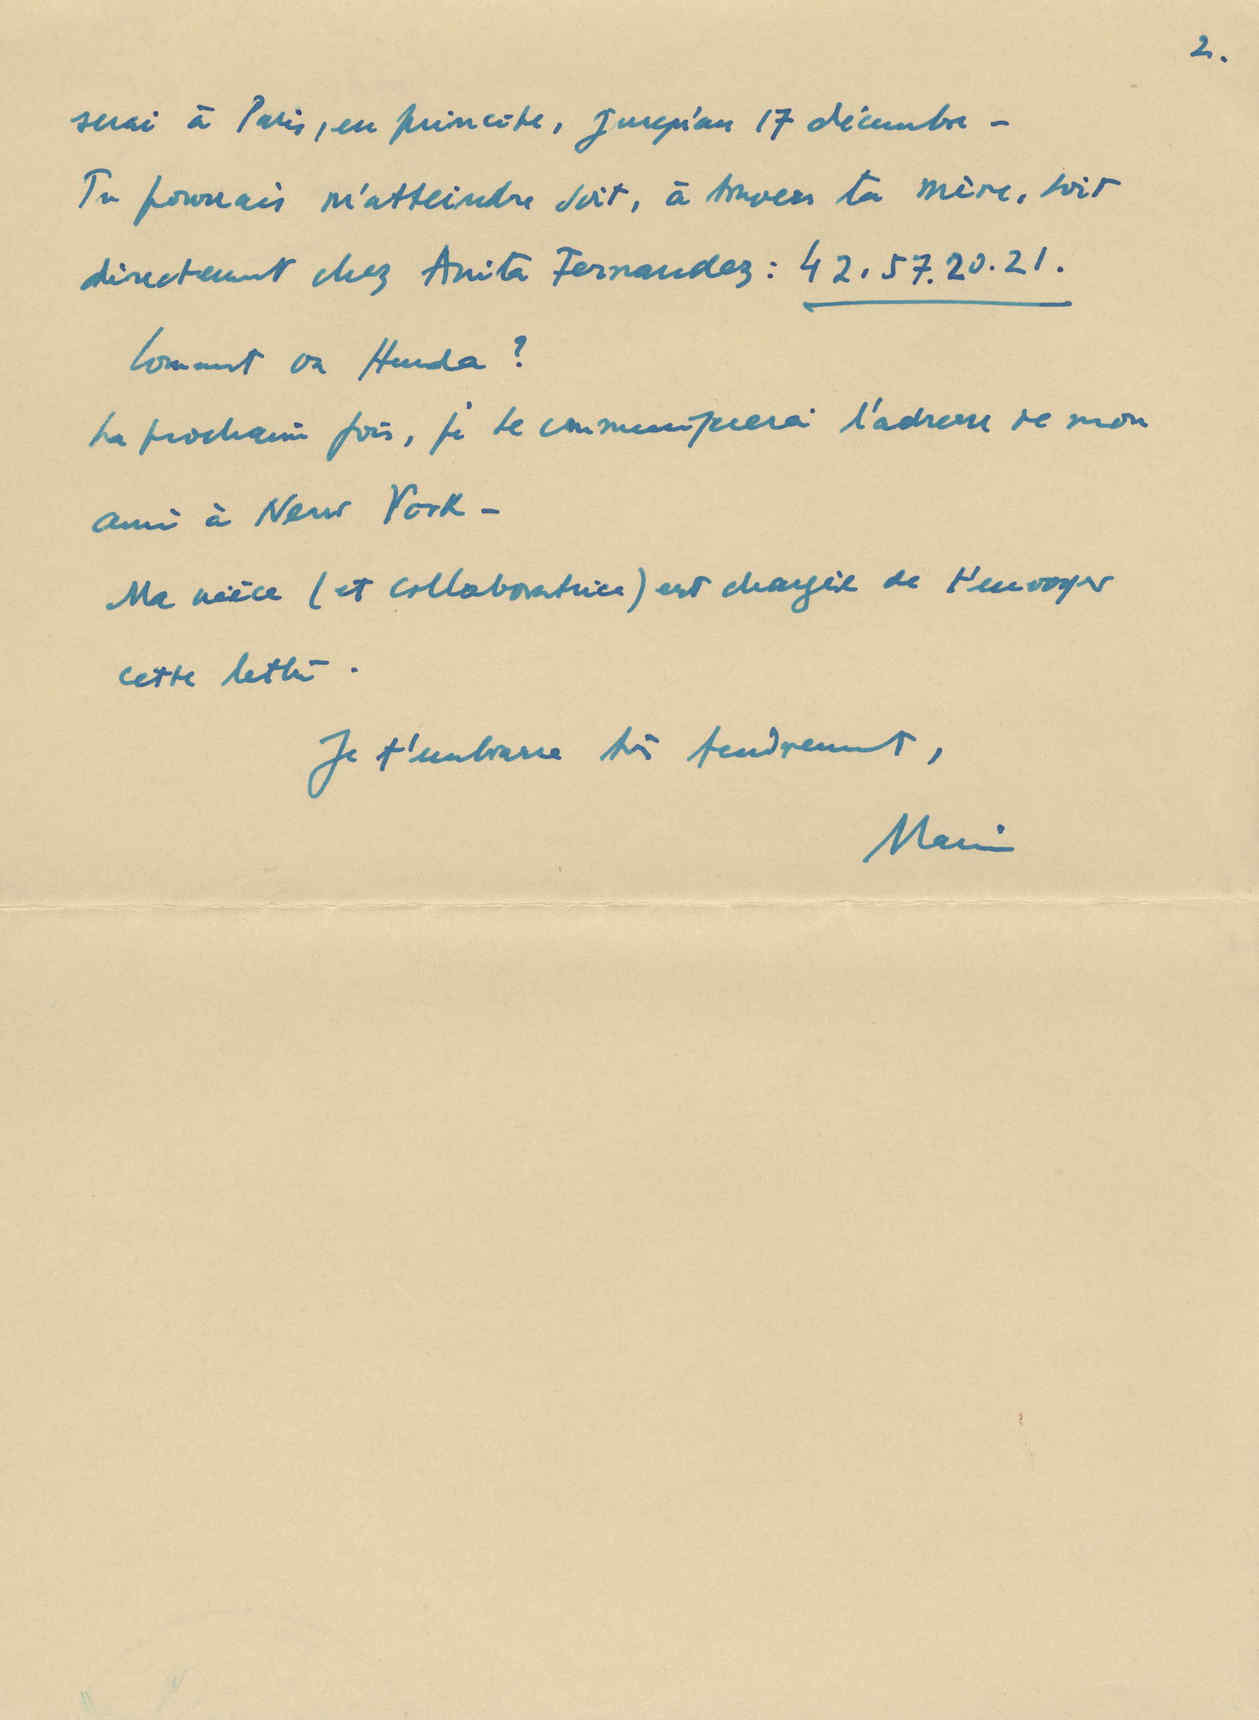 2.
serai à Paris, en principe, jusqu'au 17 décembre -
Tu pourrais m'atteindre soit, à travers ta mère, soit
directement chez Anita Fernandez : 42.57.20.21.
Comment va Hunda ?
La prochaine fois, je te communiquerai l'adresse de mon
ami à New York -
Ma nièce (et collaboratrice) est chargée de t'envoyer
cette lettre .
Je t'embrasse très tendrement,